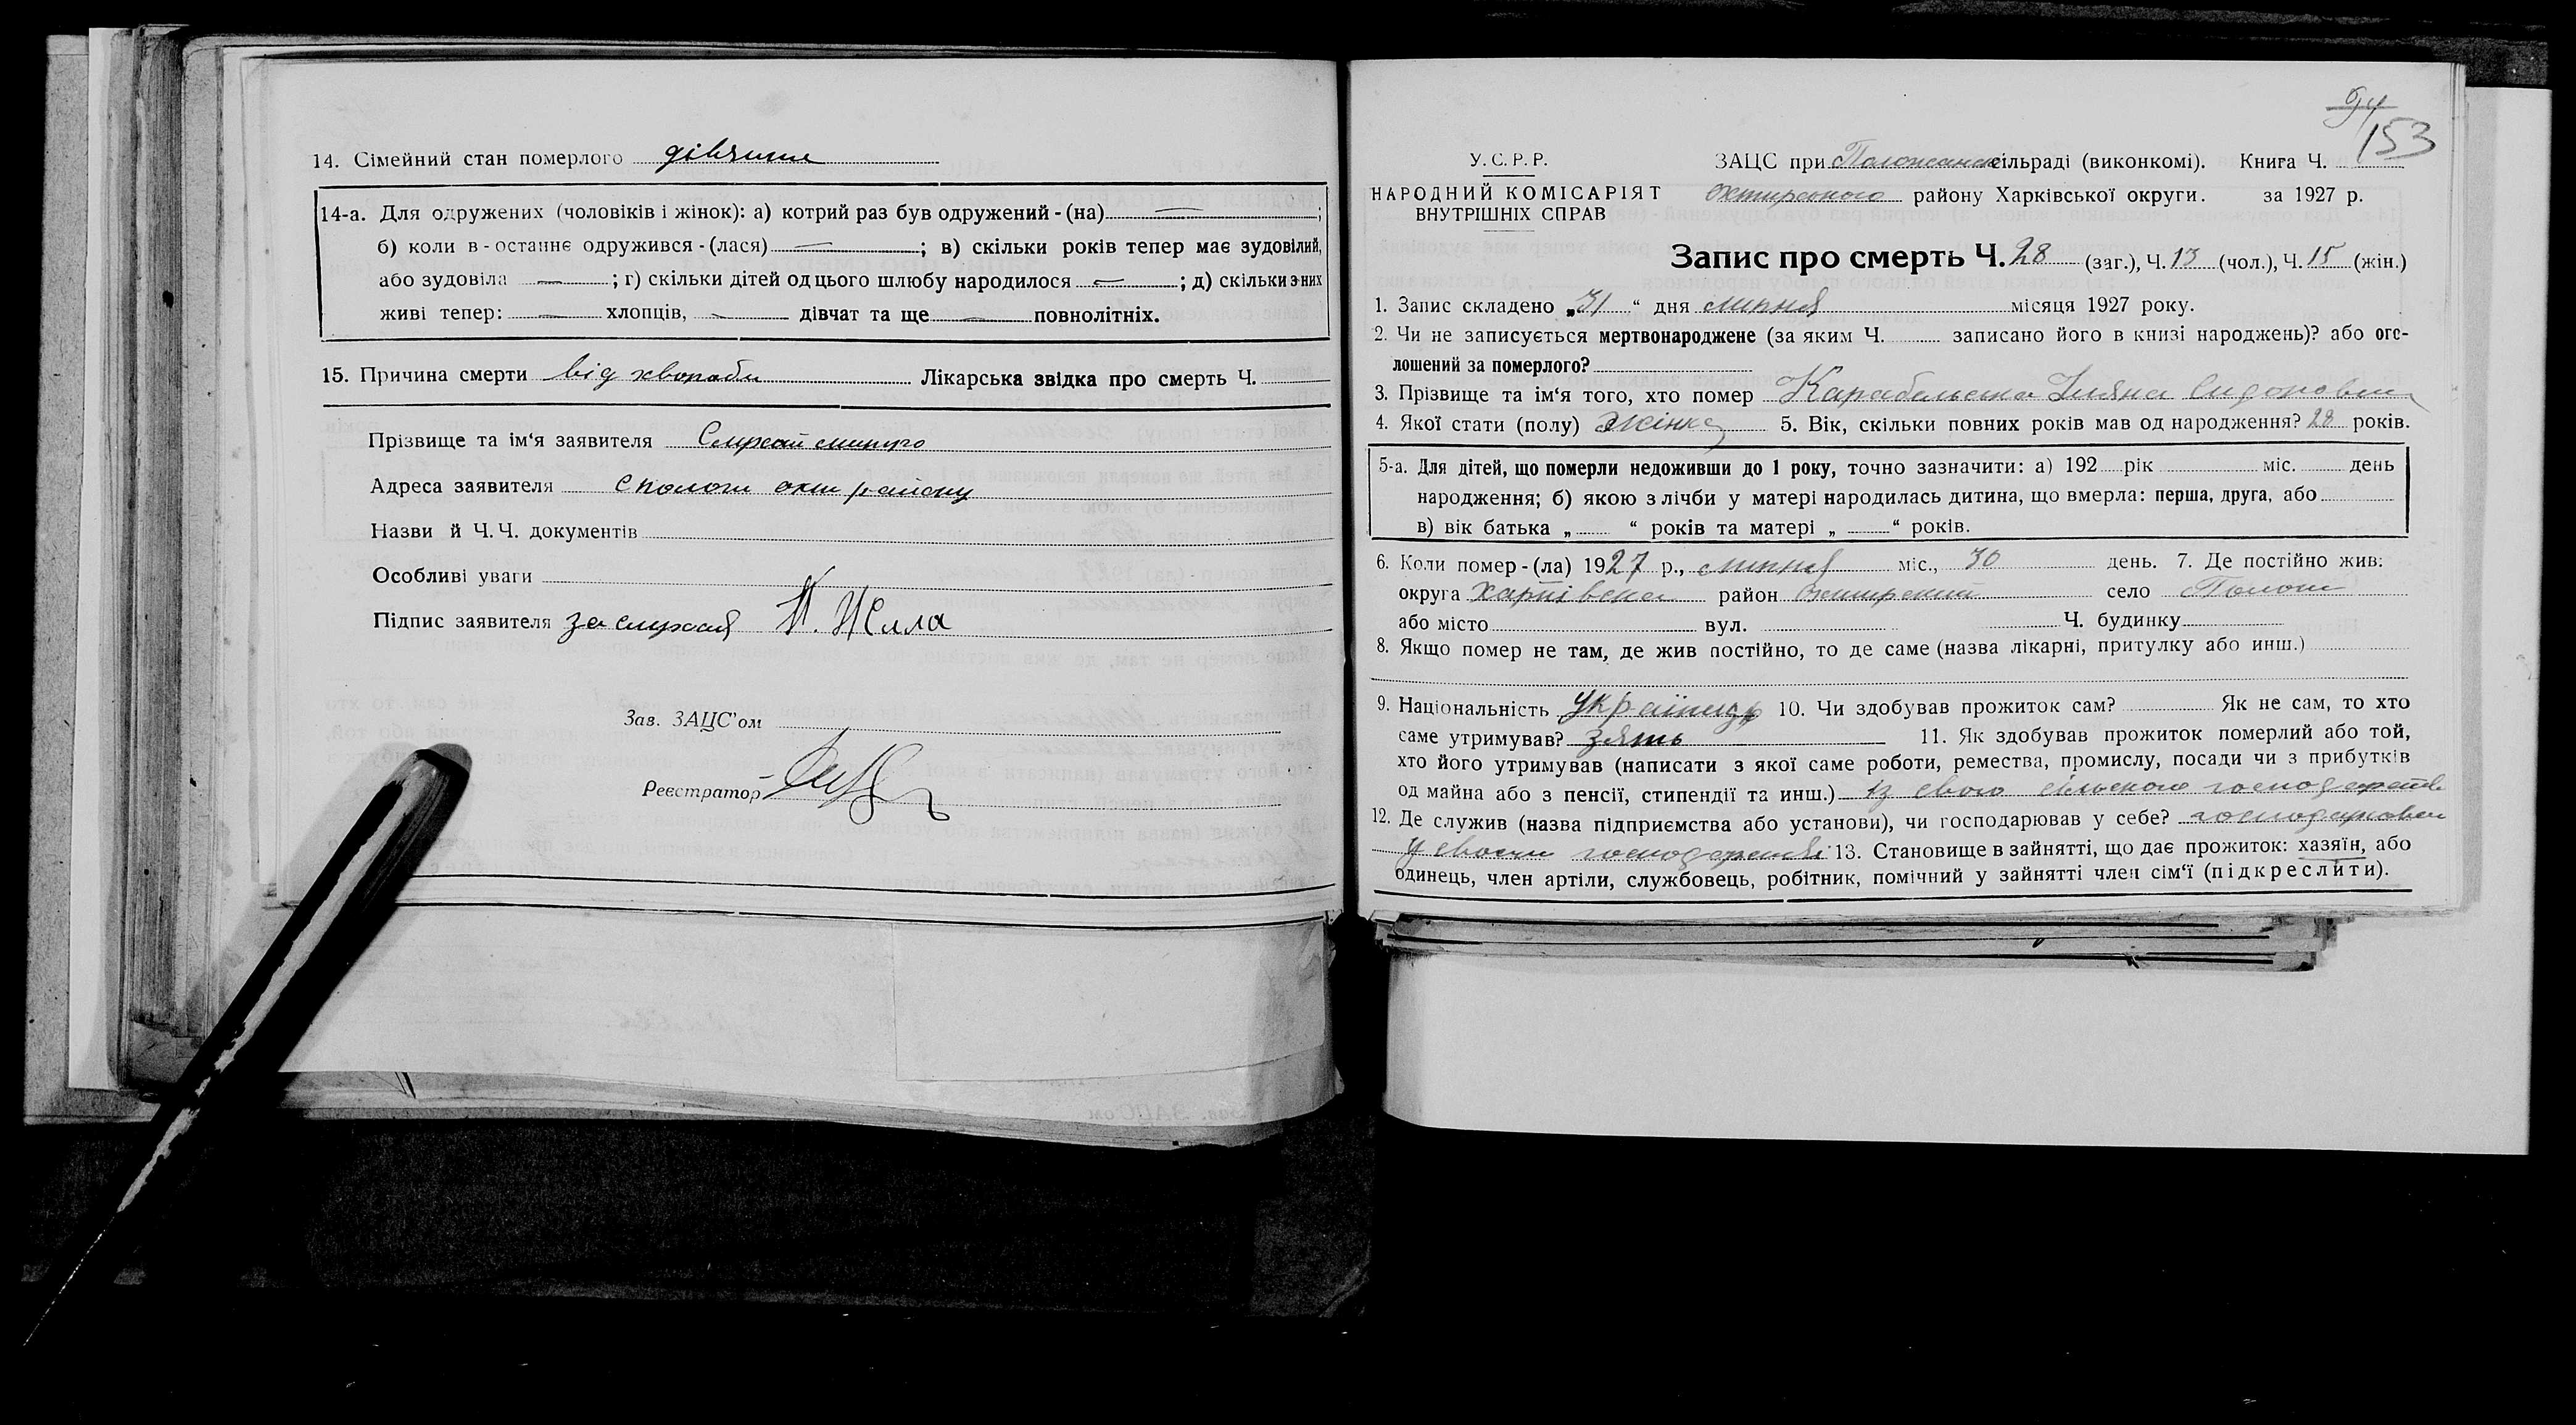 14. Сімейний стан померлого дівчина
14-а. Для одружених (чоловіків і жінок): а) котрий раз був одружений - (на) — ;
б) коли в - останнє одружився - (лася) — ; в) скільки років тепер має зудовілий,
або зудовіла — ; г) скільки дітей од цього шлюбу народилося — ; д) скільки з них
живі тепер: — хлопців, — дівчат та ще — повнолітніх.
15. Причина смерти від хвороби Лікарська звідка про смерть Ч.
Прізвище та ім‘я заявителя
Адреса заявителя с Пологи охт району
Назви й Ч. Ч. документів
Особливі уваги
Підпис заявителя за
Зав. ЗАЦС’ом
Реєстратор
94
153
У. С. Р. Р.
НАРОДНИЙ КОМІСАРІЯТ
ВНУТРІШНІХ СПРАВ
ЗАЦС при сільраді (виконкомі). Книга Ч.
Охтирського району Харківської округи. за 1927 р.
Запис про смерть Ч. 28 (заг.), Ч. 13 (чол.), Ч. 15 (жін.)
1. Запис складено „31“ дня липня місяця 1927 року.
2. Чи не записується мертвонароджене (за яким Ч. записано його в книзі народжень)? або ого-
лошений за померлого?
3. Прізвище та ім‘я того, хто помер
4. Якої стати (полу) Жінка 5. Вік, скільки повних років мав од народження? 28 років.
5-а. Для дітей, що померли недоживши до 1 року, точно зазначити: а) 192 рік міс. день
народження; б) якою з лічби у матері народилась дитина, що вмерла: перша, друга, або
в) вік батька „ “ років та матері „ “ років.
6. Коли помер - (ла) 1927 р., липня міс., 30 день. 7. Де постійно жив:
округа Харківська район Охтирський село Пологи
або місто вул. Ч. будинку
8. Якщо помер не там, де жив постійно, то де саме (назва лікарні, притулку або инш.)
9. Національність 10. Чи здобував прожиток сам? Як не сам, то хто
саме утримував? зять 11. Як здобував прожиток померлий або той,
хто його утримував (написати з якої саме роботи, ремества, промислу, посади чи з прибутків
од майна або з пенсії, стипендії та инш.) із свого сільського господарства
12. Де служив (назва підприємства або установи), чи господарював у себе? господарював
у своєм господарстві 13. Становище в зайнятті, що дає прожиток: хазяїн, або
одинець, член артіли, службовець, робітник, помічний у зайнятті член сім‘ї (підкреслити).